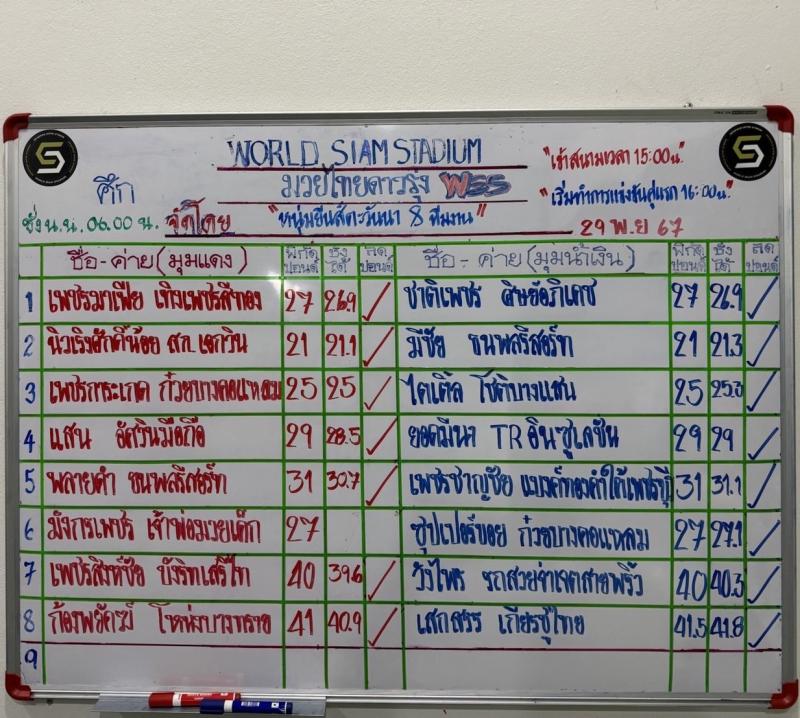 WORLD SIAM STADIUM
"เข้าสนามเวลา 15:00น."
ศึก มวยไทยดาวรุ่ง WSS
"เริ่มทำการแข่งขันคู่แรก 16:00น."
ชั่ง น.น. 06.00 น. จัดโดย "หนุ่มยีนส์ตะวันนา 8 ทีมงาน" 29 พ.ย 67
ชื่อ-ค่าย (มุมแดง) พิกัด ปอนด์ ชั่งได้ ลด ปอนด์ ชื่อ - ค่าย (มุมน้ำเงิน) พิกัด ปอนด์ ชั่งได้ ลด ปอนด์
1 เพชรมาเฟีย เกิ่งเพชรสีทอง 27 26.9 ✓ ชาติเพชร ศิษย์อภิเดช 27 26.9 ✓
2 นิวเริงศักดิ์น้อย สภ.เอกวิน 21 21.1 ✓ มีชัย ชนพลรีสอร์ท 21 21.3 ✓
3 เพชรการะเกด ก๋วยบางคอแหลม 25 25 ✓ ไตเติ้ล โชติบางแสน 25 25.3 ✓
4 แสน อัศวินมือถือ 29 28.5 ✓ ยอดมีนา TR อินซูเลชั่น 29 29 ✓
5 พลายดำ ชนพลรีสอร์ท 31 30.7 ✓ เพชรชาญชัย แบงค์ทองคำใต้เพชรบุรี 31 31.1 ✓
6 มังกรเพชร เจ้าพ่อมวยเด็ก 27 ซุปเปอร์บอย ก๋วยบางคอแหลม 27 27.1 ✓
7 เพชรสิงห์ชัย บังริทเสรีไท 40 39.6 ✓ วิงไพร รถสวยจ่าเจตสายพริ้ว 40 40.3 ✓
8 ก้องพยัคฆ์ โหน่งบางทราย 41 40.9 ✓ เสกสรร เกียรชูไทย 41.5 41.8 ✓
9